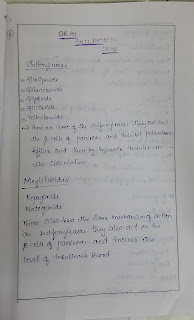 ORAL
ANTI DIABETIC
DRUGS
Sulfonylureas
Glimepiride
Glibenclamide
Glipizide
Gliclazide
Tolbutamide
These are some of the sulfonylureas they act on
the β cells of pancreas and inhibit potassium
efflux and there by increasin insulin in
the circulation
Meglitinides
Repaglinide
Nateglinide
These also have the same mechanism of action
as sulfonylureas they also act on the
β cells of pancreas and increas the
level of insulin in Blood